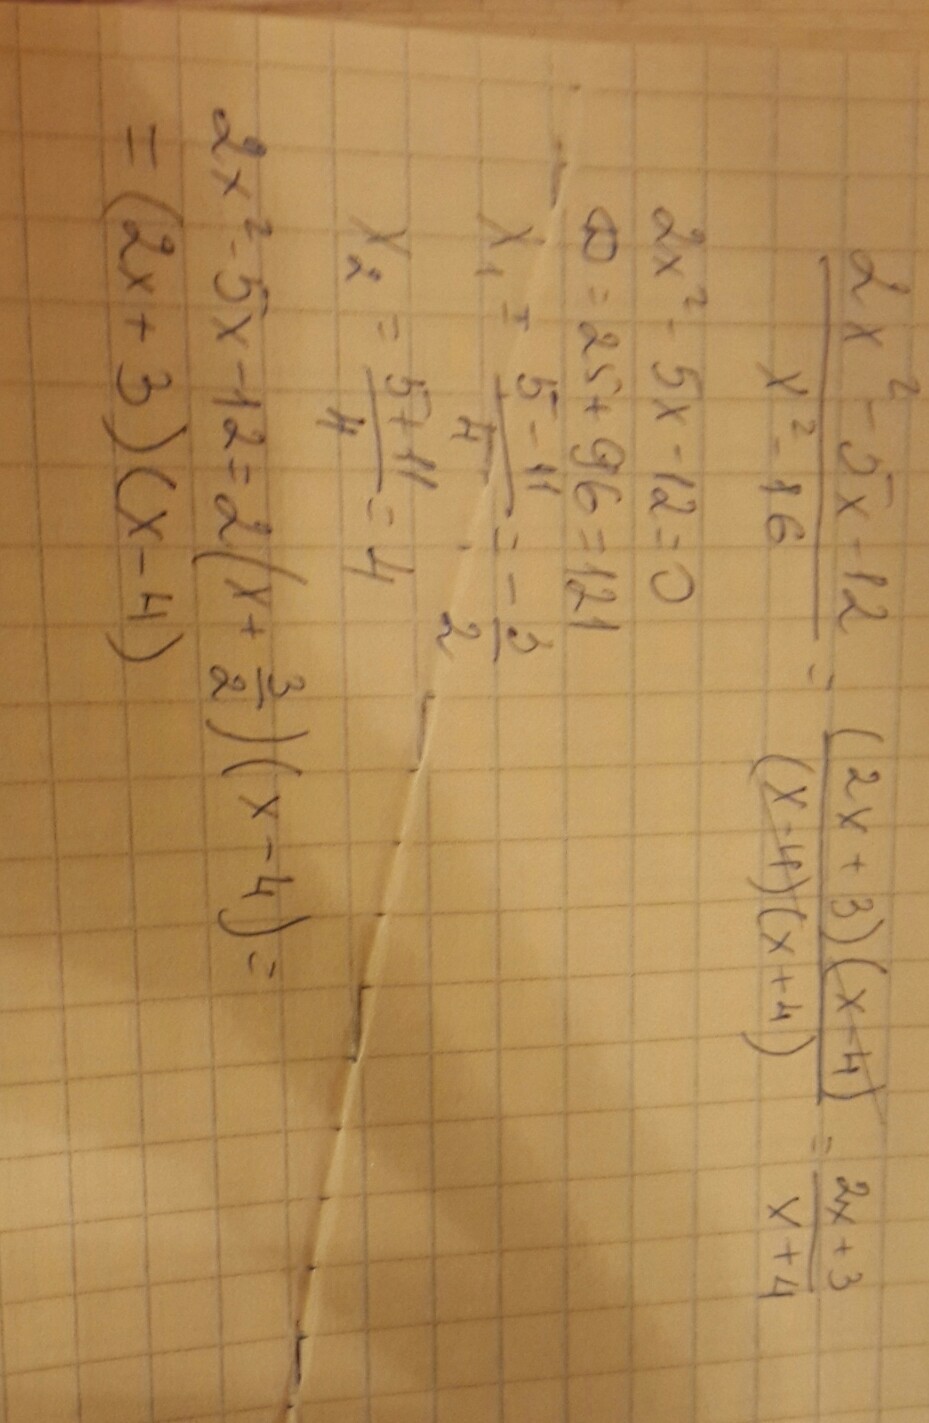 (2x² - 5x - 12)/(x² - 16) = ((2x + 3)(x - 4))/((x - 4)(x + 4)) = (2x + 3)/(x + 4)
2x² - 5x - 12 = 0
D = 25 + 96 = 121
x₁ = (5 - 11)/4 = - 3/2
x₂ = (5 + 11)/4 = 4
2x² - 5x - 12 = 2(x + 3/2)(x - 4) =
= (2x + 3)(x - 4)